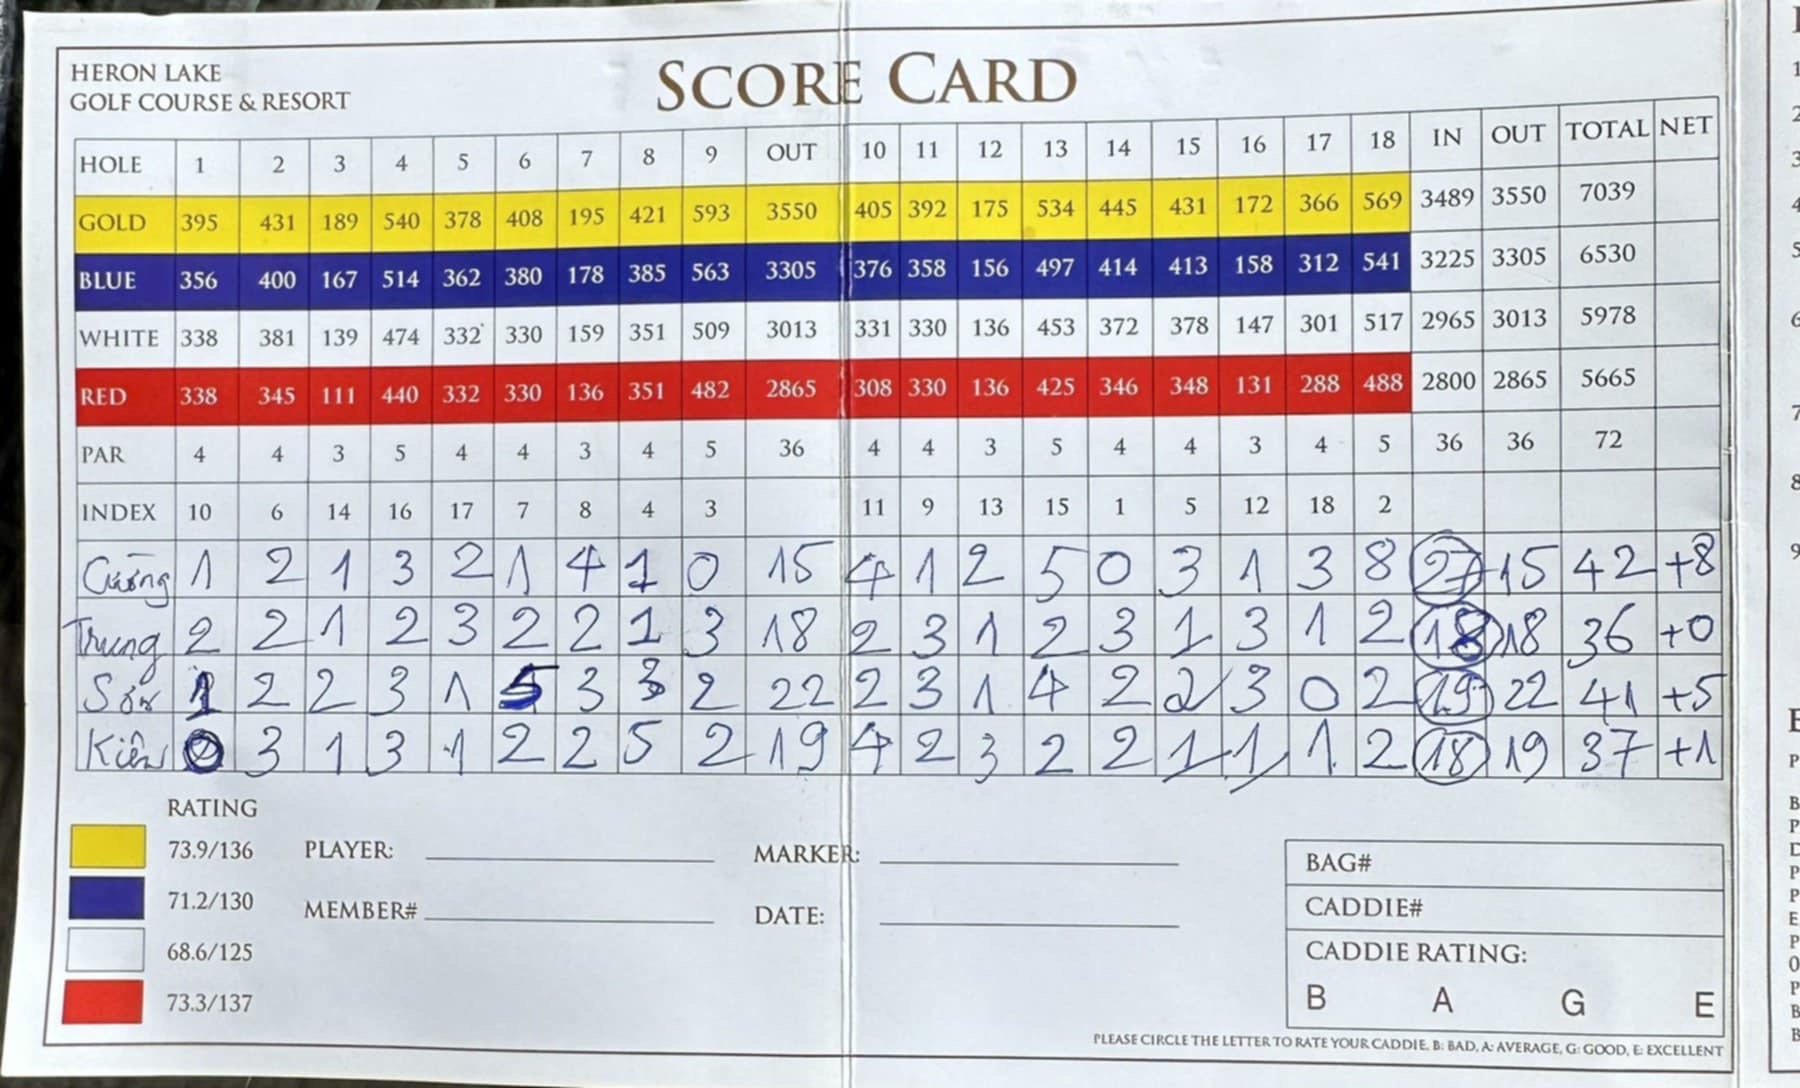 HERON LAKE
GOLF COURSE & RESORT
SCORE CARD
HOLE 1 2 3 4 5 6 7 8 9 OUT 10 11 12 13 14 15 16 17 18 IN OUT TOTAL NET
GOLD 395 431 189 540 378 408 195 421 593 3550 405 392 175 534 445 431 172 366 569 3489 3550 7039
BLUE 356 400 167 514 362 380 178 385 563 3305 376 358 156 497 414 413 158 312 541 3225 3305 6530
WHITE 338 381 139 474 332 330 159 351 509 3013 331 330 136 453 372 378 147 301 517 2965 3013 5978
RED 338 345 111 440 332 330 136 351 482 2865 308 330 136 425 346 348 131 288 488 2800 2865 5665
PAR 4 4 3 5 4 4 3 4 5 36 4 4 3 5 4 4 3 4 5 36 36 72
INDEX 10 6 14 16 17 7 8 4 3 11 9 13 15 1 5 12 18 2
Cường 1 2 1 3 2 1 4 1 0 15 4 1 2 5 0 3 1 3 8 27 15 42 +8
Trung 2 2 1 2 3 2 2 1 3 18 2 3 1 2 3 1 3 1 2 18 18 36 +0
Sơn 1 2 2 3 1 5 3 3 2 22 2 3 1 4 2 2 3 0 2 19 22 41 +5
Kiên 0 3 1 3 1 2 2 5 2 19 4 2 3 2 2 1 1 1 2 18 19 37 +1
RATING
73.9/136 PLAYER: MARKER: BAG#
71.2/130 MEMBER# DATE: CADDIE#
68.6/125 CADDIE RATING:
73.3/137 B A G E
PLEASE CIRCLE THE LETTER TO RATE YOUR CADDIE, B: BAD, A: AVERAGE, G: GOOD, E: EXCELLENT